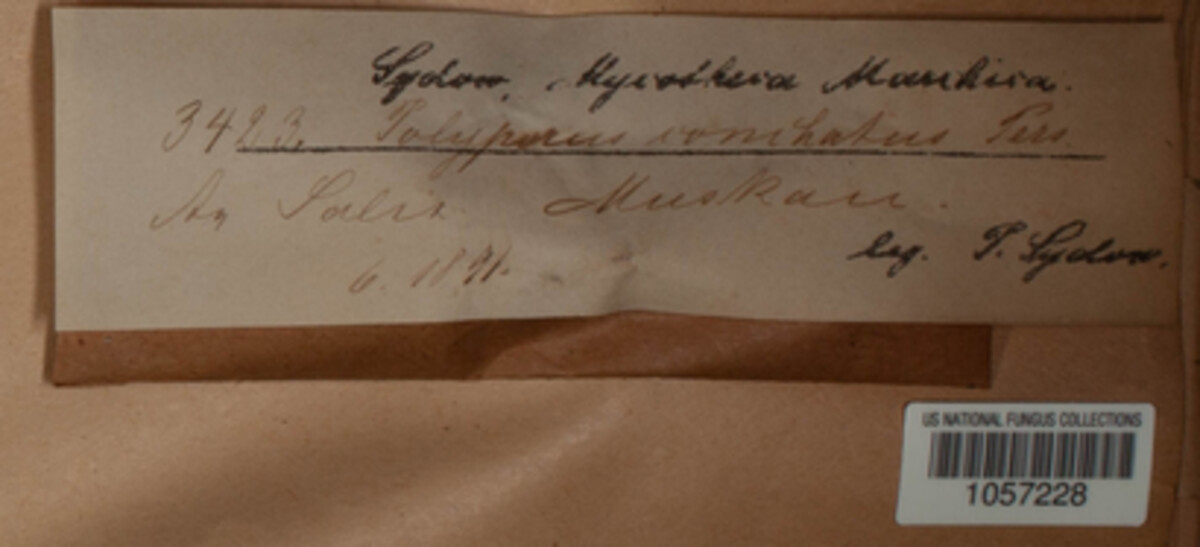 Sydow, Mycotheca Marchica.
3423. Polyporus conchatus Pers.
An Salix. Muskau.
6. 1891.
leg. P. Sydow.
US NATIONAL FUNGUS COLLECTIONS
1057228